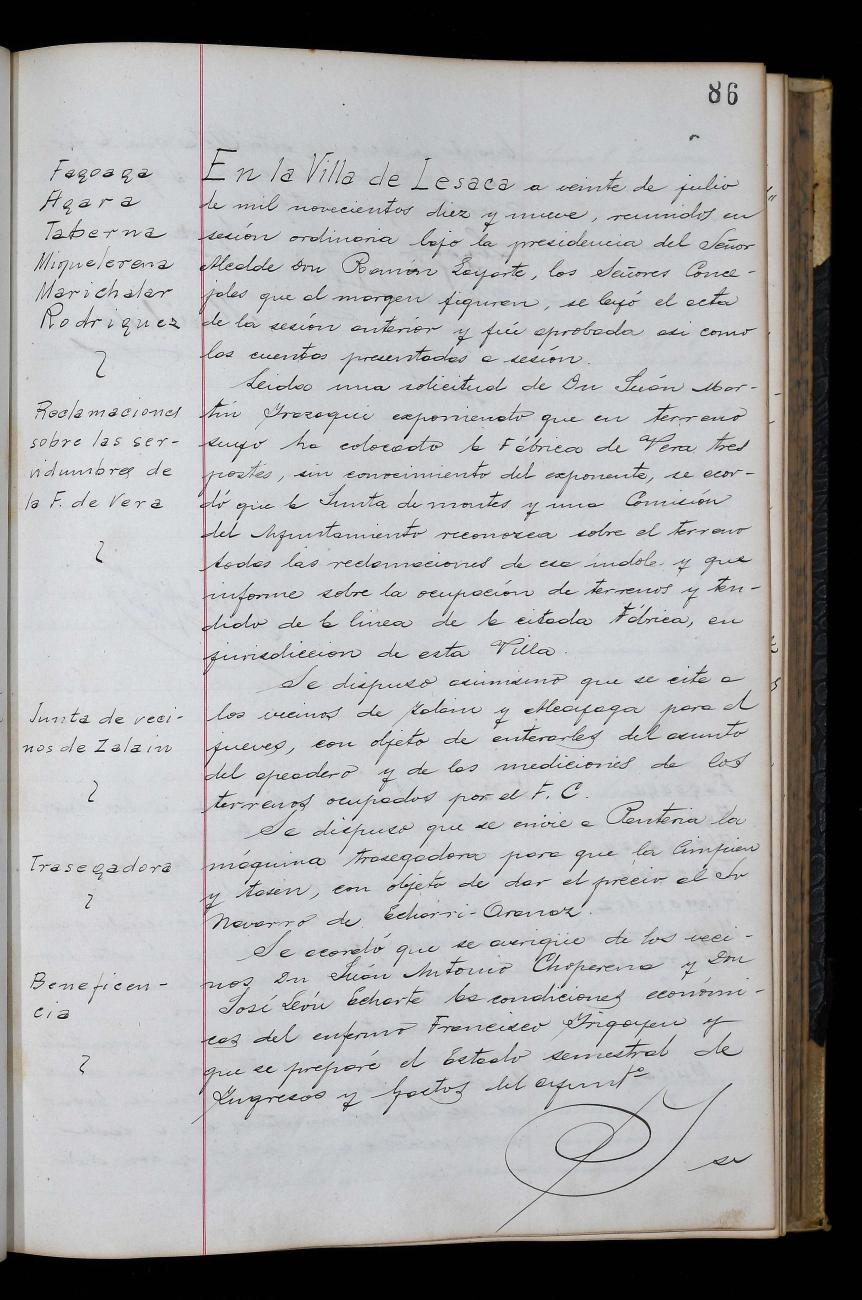 86
Fagoaga
Agara
Taberna
Miquelerena
Marichalar
Rodriguez
En la Villa de Lesaca a veinte de julio
de mil novecientos diez y nueve, reunidos en
sesión ordinaria bajo la presidencia del Señor
Alcalde Don Ramón Layarte, los Señores Conce-
jales que al margen figuran, se leyó el acta
de la sesión anterior y fué aprobada asi como
las cuentas presentadas a sesión.
Reclamaciones
sobre las ser-
vidumbres de
la F. de Vera
Leida una solicitud de Dn Juán Mar-
tin Irazoqui exponiendo que en terreno
suyo ha colocado la Fábrica de Vera tres
postes, sin conocimiento del exponente, se acor-
dó que la Junta de montes y una Comisión
del Ayuntamiento reconozca sobre el terreno
todas las reclamaciones de esa indole y que
informe sobre la ocupación de terrenos y ten-
dido de la linea de la citada Fábrica, en
jurisdiccion de esta Villa.
Junta de veci-
nos de Zalain
Se dispuso asimismo que se cite a
los vecinos de Zalain y Alcayaga para el
jueves, con objeto de enterarles del asunto
del apeadero y de las mediciones de los
terrenos ocupados por el F. C.
Trasegadora
Se dispuso que se envie a Renteria la
máquina trasegadora para que la limpien
y tasen, con objeto de dar el precio al Sr
Navarro de Echarri-Aranaz.
Beneficen-
cia
Se acordó que se averigüe de los veci-
nos Dn Juán Antonio Choperena y Don
José León Echarte las condiciones económi-
cas del enfermo Francisco Irigoyen y
que se prepare el Estado semestral de
Ingresos y Gastos del ayunto
se